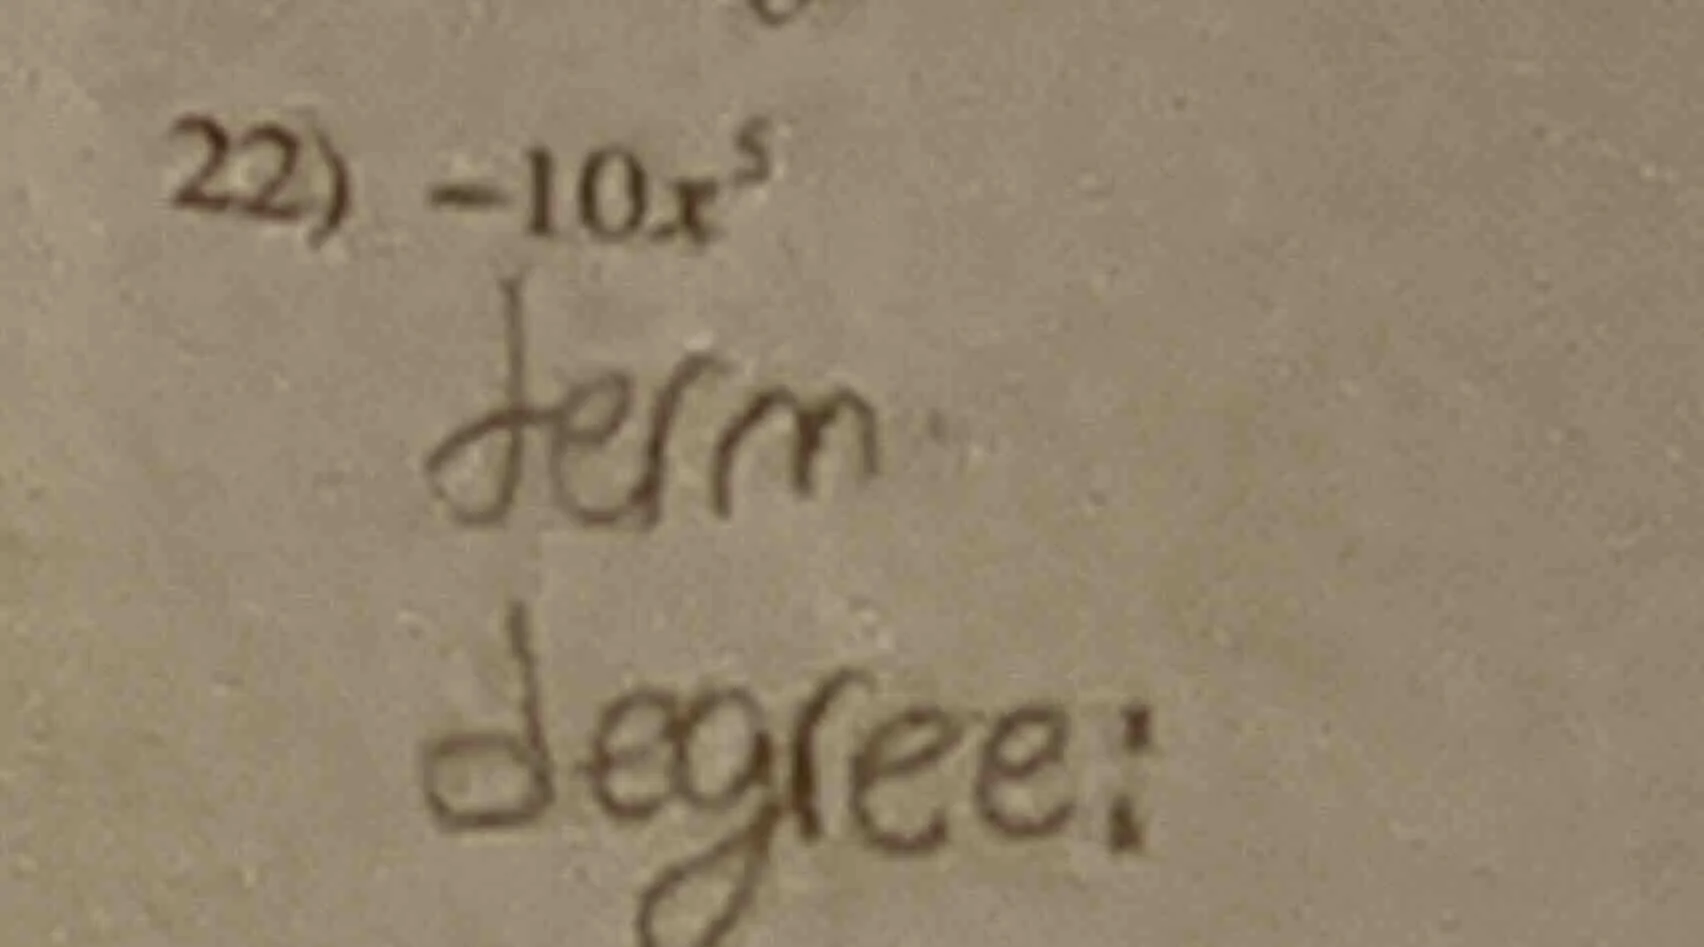 22) −10x⁵
term
degree: